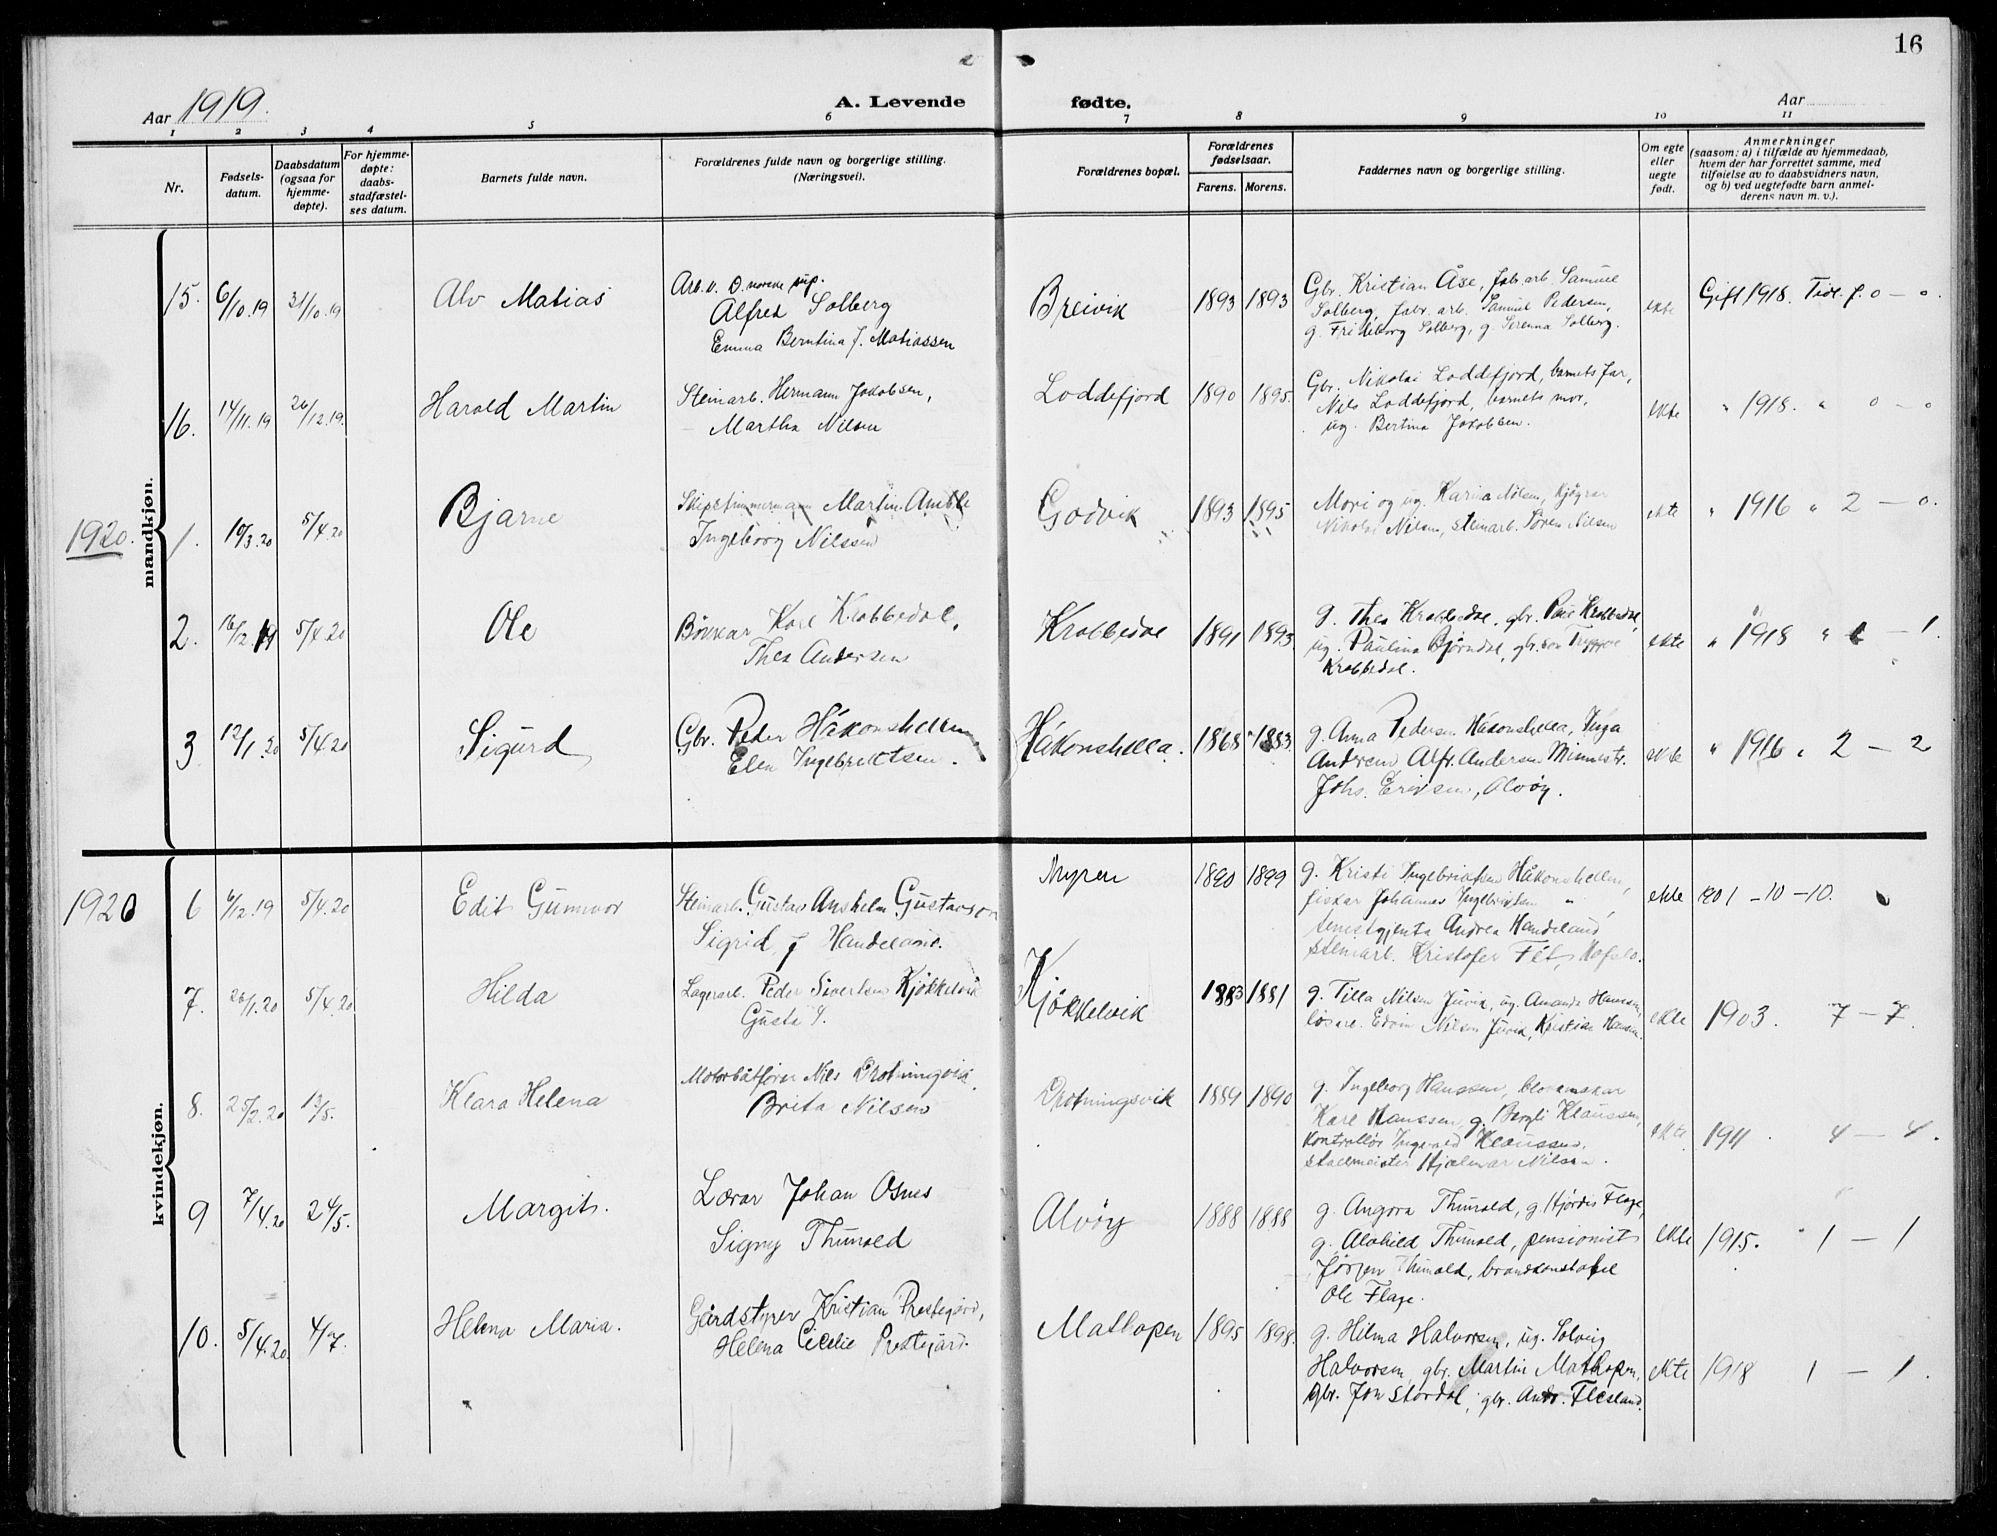 16
Aar 1919.
A. Levende fødte.
Aar
1 2 3 4 5 6 7 8 9 10 11
Nr.
Fødsels-
datum.
Daabsdatum
(ogsaa for
hjemme-
døpte).
For hjemme-
døpte:
daabs-
stadfæstel-
ses datum.
Barnets fulde navn.
Forældrenes fulde navn og borgerlige stilling.
(Næringsvei).
Forældrenes bopæl.
Forældrenes
fødselsaar.
Farens. Morens.
Faddernes navn og borgerlige stilling.
Om egte
eller
uegte
født.
Anmerkninger
(saasom: a) i tilfælde av hjemmedaab,
hvem der har forrettet samme, med
tilføielse av to daabsvidners navn,
og b) ved uegtefødte barn anmel-
derens navn m. v.).
mandkjøn.
15. 6/10.19 31/10.19 Alv Matias
Arb. v. D. norske
Alfred Solberg
Emma Berntina f. Matiassen
Breivik 1893 1893
Gbr. Kristian Åse, fabr. arb. Samuel
Solberg, fabr. arb. Samuel Pedersen,
g. Frideborg Solberg, g. Serenna Solberg.
ekte Gift 1918. Tidl. f. 0 — 0.
16. 14/11.19 26/12.19. Harald Martin
Steinarb. Hermann Jakobsen,
Martha Nilsen
Loddefjord 1890 1895.
Gbr. Nikolai Loddefjord, barnets far,
Nils Loddefjord, barnets mor,
ug. Bertina Jakobsen.
ekte " 1918. " 0 — 0
1920. 1. 10/3.20 5/4.20 Bjarne
Skipstimmermann Martin Amble
Ingeborg Nilssen
Godvik 1893 1895
Mori og ug. Karina Nilsen,
Nikolai Nilsen, steinarb. Søren Nilsen
ekte " 1916 " 2 — 0.
2. 16/12 19 5/4.20 Ole
Bøkkar Karl Krabbedal,
Thea Andersen
Krabbedal 1891 1893.
g. Thea Krabbedal, gbr. Paul Krabbedal,
ug. Paulina Bjørndal, gbr. son Tryggve
Krabbedal.
ekte " 1918 " 1 — 1.
3 12/1.20 5/4.20 Sigurd
Gbr. Peder Håkonshellen
Elen Ingebrektsen.
Håkonshella. 1868 1883.
g. Anna Pedersen Håkonshella, Inga
Andersen Alfr. Andersen Minnestr.
Johs. Eriksen, Alvøy.
ekte " 1916 " 2 — 2
kvindekjøn.
1920 6 4/12.19 5/4.20 Edit Gunnvor
Steinarb. Gustav Anshelm Gustavson
Sigrid f. Handeland.
Myren 1890 1899
g. Kristi Ingebriktsen Håkonshellen,
fiskar Johannes Ingebriktsen "
tenestgjenta Andrea Handeland
steinarb. Kristofer
ekte 1901 - 10 - 10.
7. 26/1.20 5/4.20 Hilda
Lagerarb. Peder Sivertsen Kjøkkelvik
Gusta S.
Kjøkkelvik 1883 1881
g. Tilla Nilsen Juvik, ug. Amanda Hansen,
Edvin Nilsen Juvik, Kristian Hansen.
ekte 1903. 7 — 7.
8. 25/2.20 12/5. Klara Helena
Motorbåtførar Nils Drotningsvik.
Brita Nilsen
Drotningsvik 1889 1890
g. Ingeborg Hanssen,
Karl Hanssen, g. Bergli Klaussen,
kontrollør Ingvald Klaussen,
stallmeister Hjalmar Nilsen.
ekte. 1911. 4 — 4.
9 7/4.20 24/5. Margit.
Lærar Johan Osnes
Signy Thunold
Alvøy 1888 1888
g. Angora Thunold, g. Hjørdis Flage,
g. Alvhild Thunold, pensionist
Jørgen Thunold, brandkonstabel
Ole Flage.
ekte 1915. 1 — 1
10. 5/4.20. 4/7. Helena Maria.
Gårdstyrer Kristian Prestegård,
Helena Cicelie Prestegård.
Mathopen 1895 1898.
g. Hilma Halvorsen, ug. Solveig
Halvorsen, gbr. Martin Mathopen,
gbr. Jon Stordal, gbr. Andr. Flesland.
ekte 1918 1 — 1.